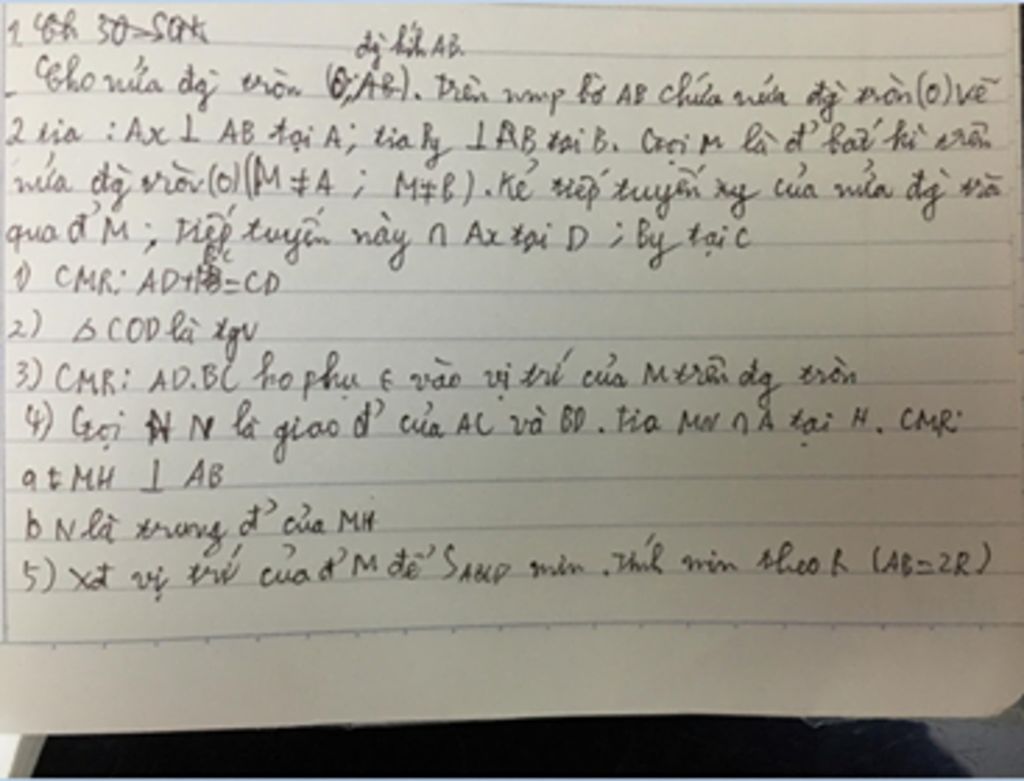 đg kính AB.
Cho nửa đg tròn (O; AB). Trên nmp bờ AB chứa nửa đg tròn (O) vẽ
2 tia : Ax ⊥ AB tại A; tia By ⊥ AB tại B. Gọi M là đ' bất kì trên
nửa đg tròn (O) (M ≠ A ; M ≠ B). Kẻ tiếp tuyến xy của nửa đg trò
qua đ' M ; tiếp tuyến này ∩ Ax tại D ; By tại C
1) CMR: AD+BC=CD
2) Δ COD là tgv
3) CMR: AD.BC ko phụ ∈ vào vị trí của M trên đg tròn
4) Gọi N là giao đ' của AC và BD. tia MN ∩ A tại H. CMR:
a MH ⊥ AB
b N là trung đ' của MH
5) Xđ vị trí của đ' M để S ABCD min. Tính min theo R (AB=2R)